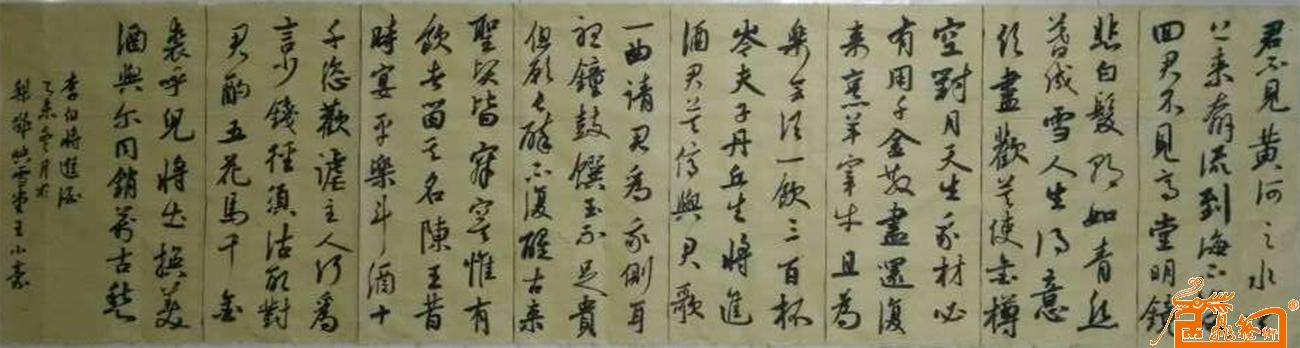 君不見黃河之水天
上来奔流到海不復
回君不見高堂明鏡
悲白髮朝如青丝
暮成雪人生得意
須盡歡莫使金樽
空對月天生我材必
有用千金散盡還復
来烹羊宰牛且為
樂會須一飲三百杯
岑夫子丹丘生將進
酒君莫停與君歌
一曲請君為我側耳
聽鐘鼓饌玉不足貴
但願長醉不復醒古来
聖賢皆寂寞惟有
飲者留其名陳王昔
時宴平樂斗酒十
千恣歡謔主人何為
言少錢徑須沽取對
君酌五花馬千金
裘呼兒將出換美
酒與尔同銷萬古愁
李白將進酒
乙未冬月於
雪堂王小